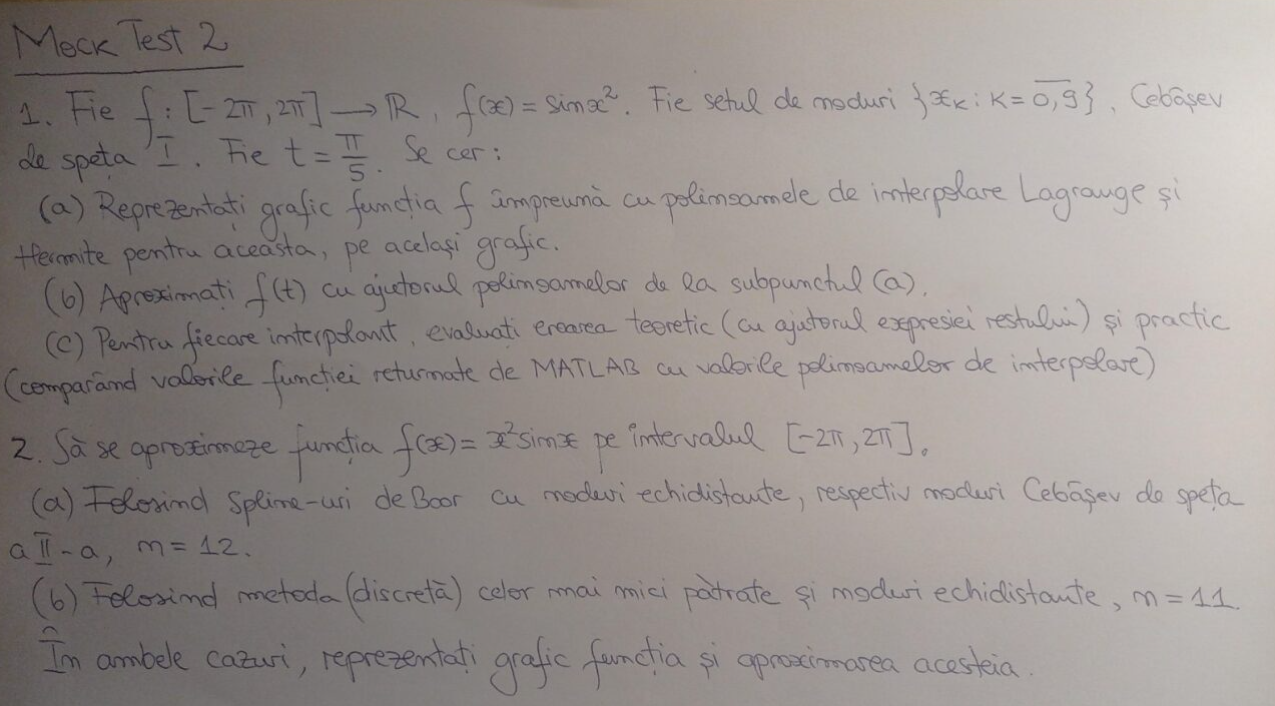 Mock Test 2
1. Fie f : [-2π, 2π] → ℝ, f(x) = sin x². Fie setul de noduri {xₖ : k = \overline{0,9}}, Cebâșev
de speța I. Fie t = π/5. Se cer:
(a) Reprezentați grafic funcția f împreună cu polinoamele de interpolare Lagrange și
Hermite pentru aceasta, pe același grafic.
(b) Aproximați f(t) cu ajutorul polinoamelor de la subpunctul (a).
(c) Pentru fiecare interpolant, evaluați eroarea teoretic (cu ajutorul expresiei restului) și practic
(comparând valorile funcției returnate de MATLAB cu valorile polinoamelor de interpolare)
2. Să se aproximeze funcția f(x) = x² sin x pe intervalul [-2π, 2π].
(a) Folosind Spline-uri deBoor cu noduri echidistante, respectiv noduri Cebâșev de speța
a II-a, n = 12.
(b) Folosind metoda (discretă) celor mai mici pătrate și noduri echidistante, n = 11.
În ambele cazuri, reprezentați grafic funcția și aproximarea acesteia.